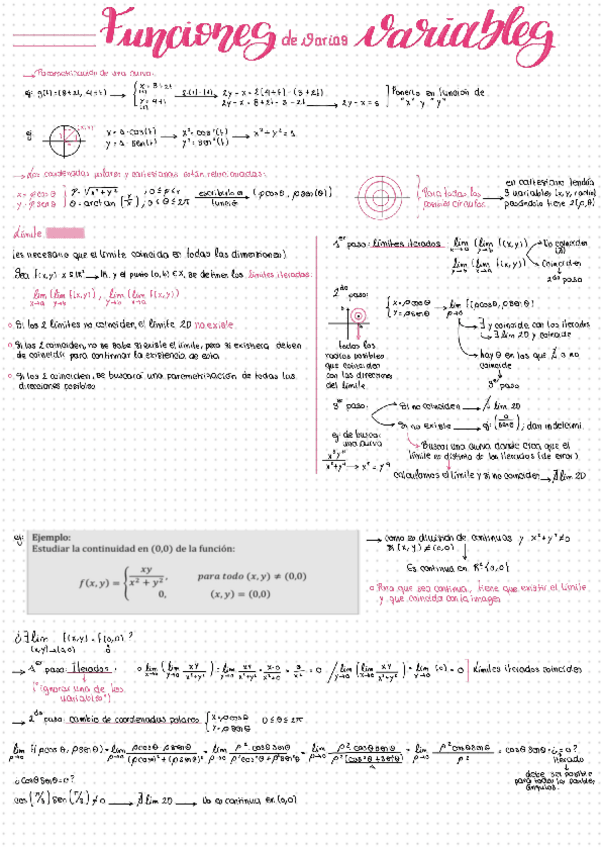 Funciones de varias variables
→ Parametrización de una curva.
ej: g(t) = (3+2t, 4+t) → { x = 3+2t
y = 4+t
2y - x = 2(4+t) - (3+2t)
2y - x = 8+2t - 3 - 2t → 2y - x = 5
Ponerlo en función de "x" y "y"
ej:
y = a · sen(t)
x² + y² = 1
→ Las coordenadas polares y cartesianas están relacionadas:
x = ρ cos θ
y = ρ sen θ
ρ = √x² + y²
θ = arctan (y/x), 0 ≤ θ ≤ 2π
(ρ cos θ, ρ sen θ)
Para todas las posibles círculos.
en cartesiano tendría
Límite
(es necesario que el límite coincida en todas las dimensiones)
Sea f(x,y): X ⊆ R² → R, y el punto (a,b) ∈ X, se definen los límites iterados:
lim x→a (lim y→b f(x,y)), lim y→b (lim x→a f(x,y))
○ Si los 2 límites no coinciden, el límite 2D no existe.
○ Si los 2 coinciden, no se sabe si existe el límite, pero si existiera deben
de coincidir para confirmar la existencia de este
○ Si los 2 coinciden, se buscará una parametrización de todas las
direcciones posibles
1er paso: límites iterados
lim x→a (lim y→b f(x,y)) → No coinciden
lim y→b (lim x→a f(x,y)) → Coinciden
2do paso
2do paso:
{ x = ρ cos θ
y = ρ sen θ
→ lim ρ→0 f(ρ cos θ, ρ sen θ)
→ ∃ y coincide con los iterados
→ ∃ lim 2D y coincide
→ hay θ en los que ∄ o no
coincide
3er paso
todos los
radios posibles
que coinciden
con las direcciones
del límite
3er paso:
Si no coinciden → ∄ lim 2D
Si no existe
ej: de buscar
una curva
Buscar una curva donde crea que el
límite es distinto de los iterados (de error)
calculamos el límite y si no coinciden → ∄ lim 2D
ej:
Ejemplo:
Estudiar la continuidad en (0,0) de la función:
f(x, y) = { xy / x² + y², para todo (x, y) ≠ (0,0)
0, (x, y) = (0,0)
→ como es división de continuas y x² + y² ≠ 0
si (x, y) ≠ (0,0)
Es continua en R² \ (0,0)
○ Para que sea continua, tiene que existir el límite
y que coincida con la imagen
¿∃ lim (x,y)→(0,0) f(x,y) = f(0,0)?
→ 1er paso: Iterados:
límites iterados coinciden
("ignorar una de las
variables")
→ 2do paso: cambio de coordenadas polares { x = ρ cos θ
y = ρ sen θ
0 ≤ θ ≤ 2π
lim ρ→0 f(ρ cos θ, ρ sen θ) = lim ρ→0 ρ cos θ · ρ sen θ / (ρ cos θ)² + (ρ sen θ)² = lim ρ→0 ρ² cos θ sen θ / ρ² cos² θ + ρ² sen² θ = lim ρ→0 ρ² cos θ sen θ / ρ² (cos² θ + sen² θ) = lim ρ→0 ρ² cos θ sen θ / ρ² = cos θ sen θ ¿= 0?
iterado
debe ser posible
para todos los posibles
ángulos.
¿cos θ sen θ = 0?
≠ 0 → ∄ lim 2D → No es continua en (0,0)